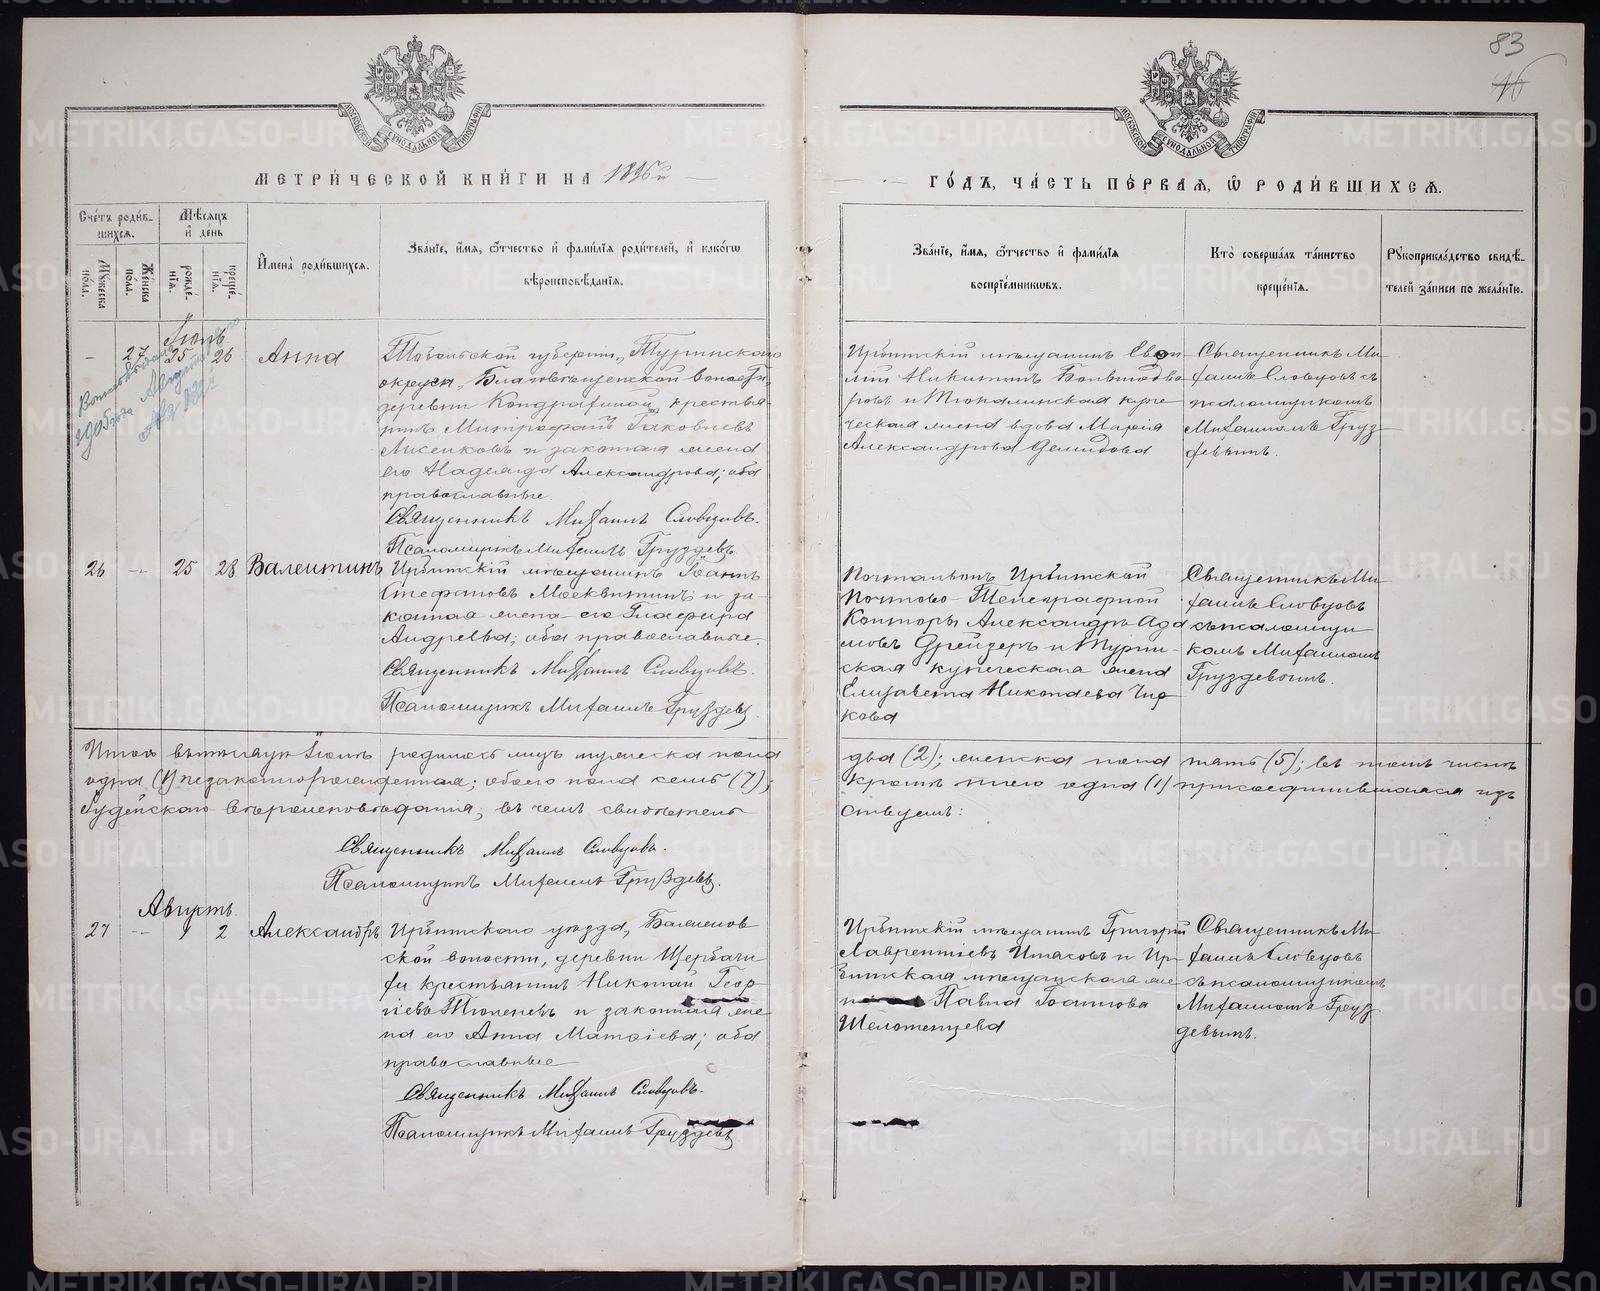 83
16
МОСКОВСКОЙ СУНОДАЛЬНОЙ ТИПОГРАФІИ
МОСКОВСКОЙ СУНОДАЛЬНОЙ ТИПОГРАФІИ
МЕТРИ́ЧЕСКОЙ КНИ́ГИ НА 1896й
ГО́ДЪ, ЧА́СТЬ ПЕ́РВАЯ, Ѡ РОДИ́ВШИХСЯ.
Сче́тъ роди́вшихся.
Мѣ́сяцъ и де́нь
Му́жеска по́ла.
Же́нска по́ла.
рожде́нїя.
креще́нїя.
Имена̀ роди́вшихся.
Зва́нїе, и́мя, ѻ҆́тчество и҆ фами́лїя роди́телей, и҆ како́гѡ вѣроисповѣ́данїя.
Зва́нїе, и́мя, ѻ҆́тчество и҆ фами́лїя воспрїе́мникѡвъ.
Кто̀ соверша́лъ та́инство креще́нїя.
Рꙋкоприкла́дство свидѣ́телей за́писи по жела́нїю.
Іюль
– 27 25 26 Анна
Тобольской губерніи, Туринскаго
округа, Благовѣщенской волости,
деревни Кондрахиной, крестья-
нинъ Митрофанъ Іаковлевъ
Лисенковъ и законная жена
его Надежда Александрова; оба
православные.
Священникъ Михаилъ Словцовъ.
Псаломщикъ Михаилъ Груздевъ
Ирбитскій мѣщанинъ
Никитинъ
и Тюкалинская купе-
ческая жена вдова Марія
Александрова Демидова
Священникъ Ми-
хаилъ Словцовъ съ
псаломщикомъ
Михаиломъ Груз-
девымъ.
26 – 25 28 Валентинъ
Ирбитскій мѣщанинъ Іоаннъ
Стефановъ Москвитинъ и за-
конная жена его Глафира
Андреева; оба православные.
Священникъ Михаилъ Словцовъ.
Псаломщикъ Михаилъ Груздевъ.
Почтальонъ Ирбитской
Почтово-Телеграфной
Конторы Александръ Ада-
мовъ Дрейзеръ и Турин-
ская купеческая жена
Елизавета Николаева Чир-
кова
Священникъ Ми-
хаилъ Словцовъ
съ псаломщи-
комъ Михаиломъ
Груздевымъ.
Итого въ мѣсяцѣ Іюлѣ родилось лицъ мужеска пола два (2); женска пола пять (5); въ томъ числѣ
одна (1) незаконнорожденная; обоего пола семь (7); кромѣ того одна (1) присоединившаяся изъ
Іудейскаго вѣроисповѣданія; въ чемъ свидѣтельствуемъ:
Священникъ Михаилъ Словцовъ.
Псаломщикъ Михаилъ Груздевъ.
Августъ
27 – 1 2 Александръ
Ирбитскаго уѣзда,
ской волости, деревни
крестьянинъ Николай Геор-
гіевъ Тюленевъ и законная же-
на его Анна Матѳіева; оба
православные
Священникъ Михаилъ Словцовъ.
Псаломщикъ Михаилъ Груздевъ
Ирбитскій мѣщанинъ Григорій
Лаврентіевъ и Ир-
битская мѣщанская же-
на Павла Іоаннова
Шеломенцева
Священникъ Ми-
хаилъ Словцовъ
съ псаломщикомъ
Михаиломъ Груз-
девымъ.
METRIKI.GASO-URAL.RU